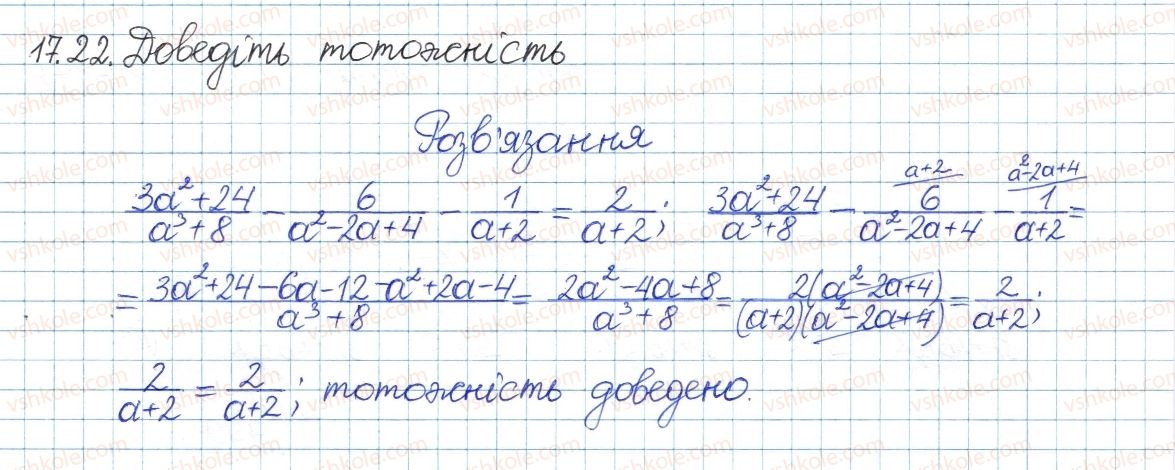 17.22. Доведіть тотожність
Розв'язання
(3a²+24)/(a³+8) − 6/(a²−2a+4) − 1/(a+2) = 2/(a+2); (3a²+24)/(a³+8) − 6/(a²−2a+4) (a+2) − 1/(a+2) (a²−2a+4) =
= (3a²+24−6a−12−a²+2a−4)/(a³+8) = (2a²−4a+8)/(a³+8) = 2(a²−2a+4)/((a+2)(a²−2a+4)) = 2/(a+2);
2/(a+2) = 2/(a+2); тотожність доведено.